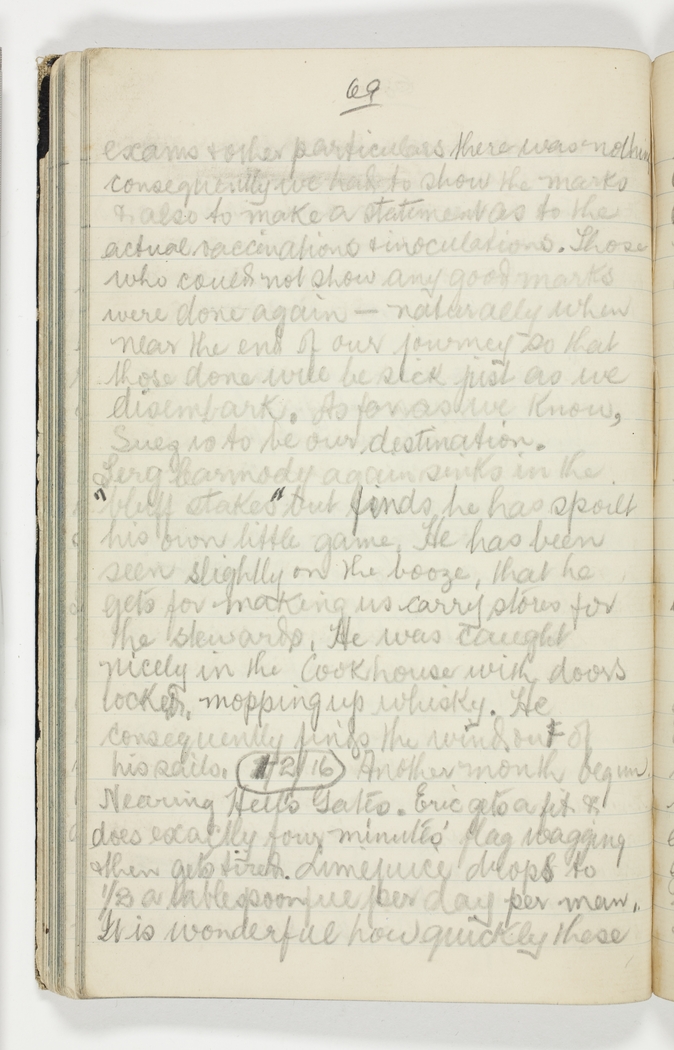 69
exams & other particulars there was nothin
consequently we had to show the marks
& also to make a statement as to the
actual vaccinations & inoculations. Those
who could not show any good marks
were done again — naturally when
near the end of our journey so that
those done will be sick just as we
disembark. As far as we know,
Suez is to be our destination.
Serg Carmody again sinks in the
"bluff stakes" but finds he has spoilt
his own little game. He has been
seen slightly on the booze, that he
gets for making us carry stores for
the stewards. He was caught
nicely in the Cookhouse with doors
locked, mopping up whisky. He
consequently finds the wind out of
his sails. 1/2/16 Another month begun.
Nearing Hell's Gates. Eric gets a fit &
does exactly four minutes' flag wagging
& then gets tired. Limejuice drops to
1/3 a tablespoonful per day per man.
It is wonderful how quickly these